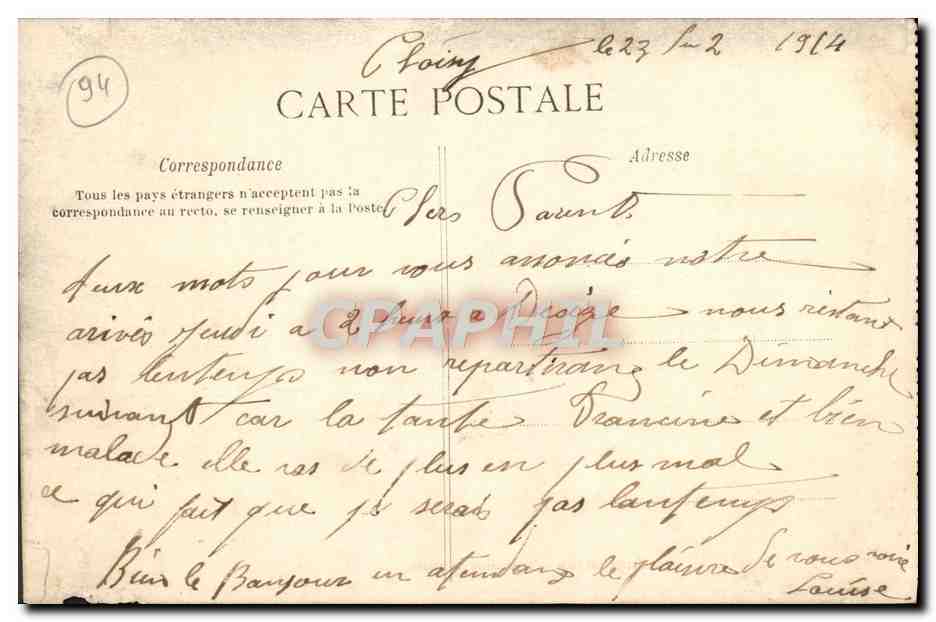 94
Choisy le 23 1914
CARTE POSTALE
Correspondance
Adresse
Tous les pays étrangers n'acceptent pas la
correspondance au recto, se renseigner à la Poste
Chers Parents
deux mots pour vous anoncés notre
arivés jeudi a 2 heurs a Decize nous restant
pas lentemps non repartirong le Dimanche
suivant car la tante Francine et bien
malade elle vas de plus en plus mal
ce qui fait que je serais pas lontemps
Bien le Bonjour en atendant le plaisire de vous voire
Louise
CPAPHIL